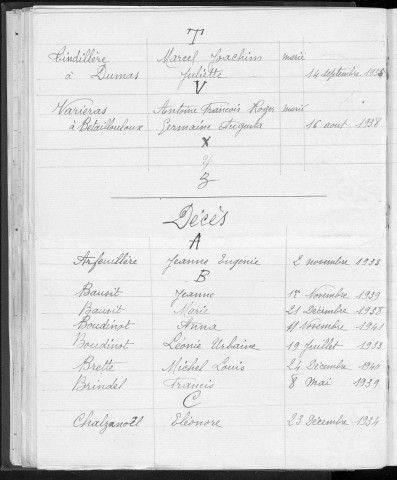 T
Tindillère Marcel Joachim marié
à Dumas Juliette 14 septembre 1935
V
Varieras Antoine François Roger marié
à Betaillouloux Germaine 16 aout 1938
X
Y
Z
Décès
A
Arfeuillère Jeanne Eugénie 2 novembre 1933
B
Bausit Jeanne 18 Novembre 1939
Bausit Marie 21 Décembre 1938
Boudinot Anna 11 Novembre 1941
Boudinot Léonie Urbaine 19 Juillet 1933
Brette Michel Louis 24 Décembre 1940
Brindel Francis 8 Mai 1939
C
Chalzanoël Eléonore 23 Décembre 1934